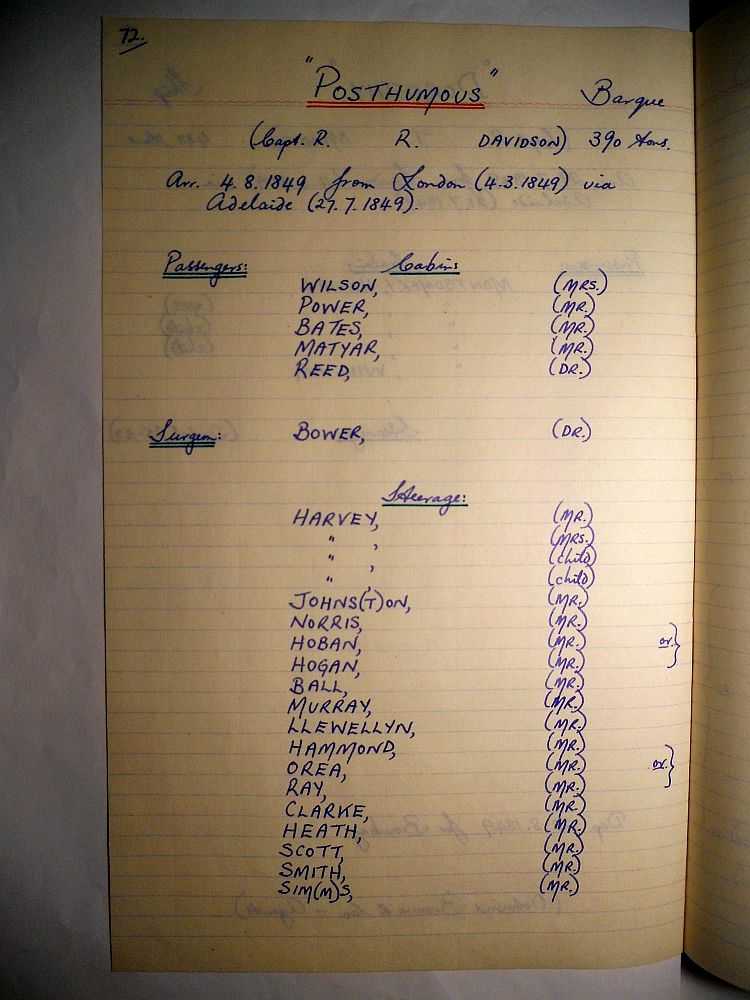 72.
"POSTHUMOUS" Barque
(Capt. R. R. DAVIDSON) 390 tons.
Arr. 4.8.1849 from London (4.3.1849) via
Adelaide (27.7.1849).
Passengers: Cabin:
WILSON, (MRS.)
POWER, (MR.)
BATES, (MR.)
MATYAR, (MR.)
REED, (DR.)
Surgeon: BOWER, (DR.)
Steerage:
HARVEY, (MR.)
" , (MRS.)
" , (child)
" , (child)
JOHNS(T)ON, (MR.)
NORRIS, (MR.)
HOBAN, (MR.) or }
HOGAN, (MR.)
BALL, (MR.)
MURRAY, (MR.)
LLEWELLYN, (MR.)
HAMMOND, (MR.)
OREA, (MR.) or }
RAY, (MR.)
CLARKE, (MR.)
HEATH, (MR.)
SCOTT, (MR.)
SMITH, (MR.)
SIM(M)S, (MR.)